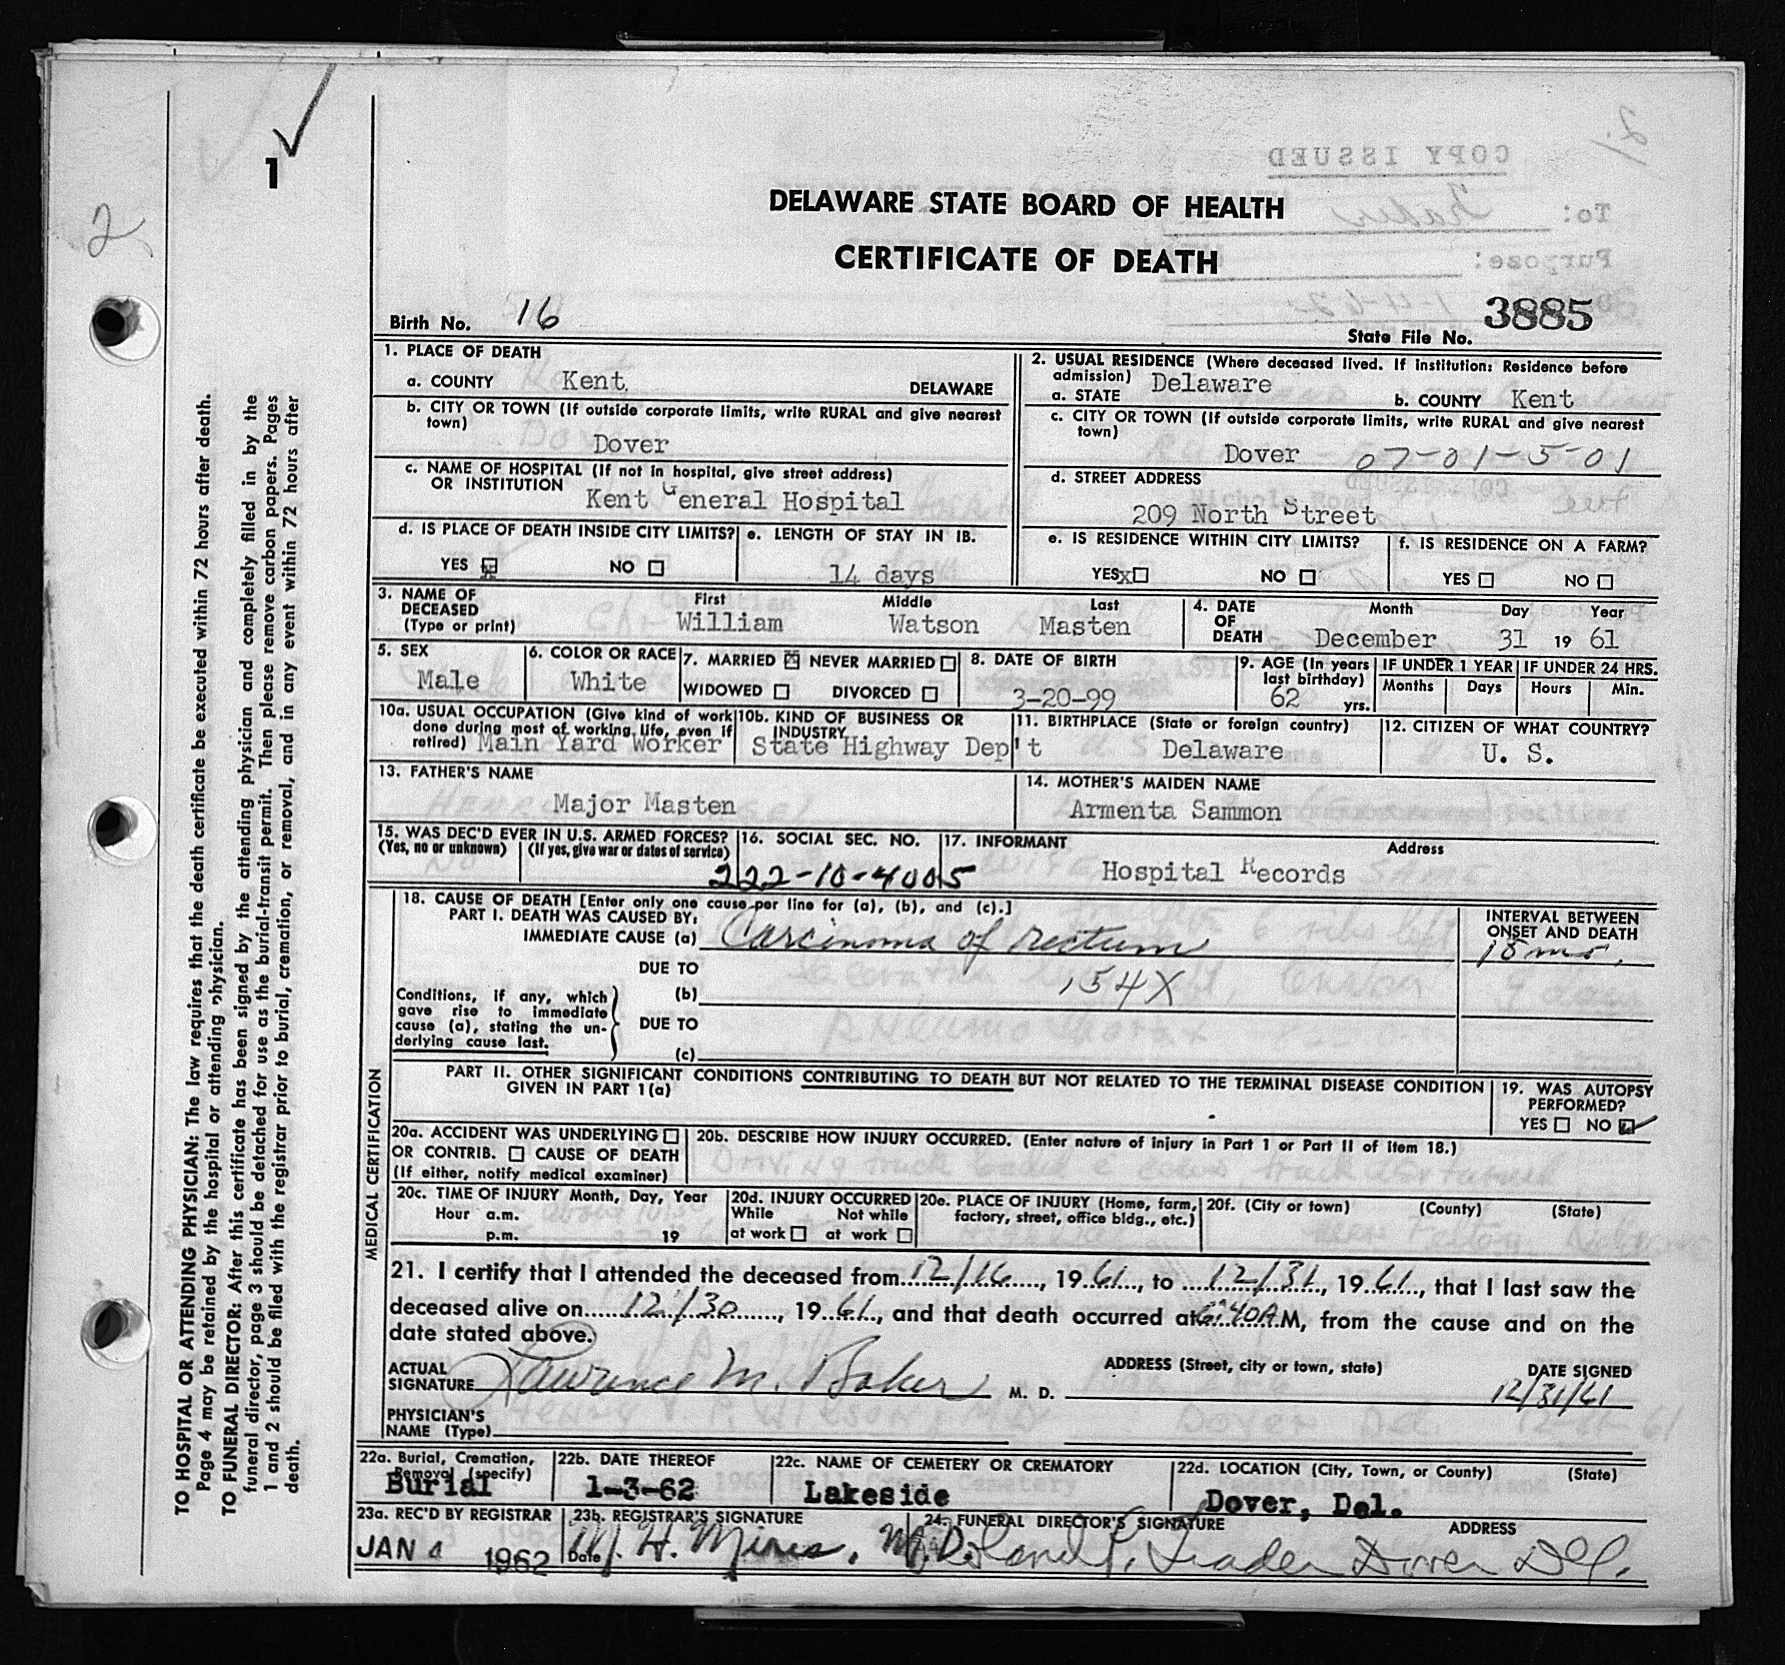 1
2
TO HOSPITAL OR ATTENDING PHYSICIAN: The law requires that the death certificate be executed within 72 hours after death.
Page 4 may be retained by the hospital or attending physician.
TO FUNERAL DIRECTOR: After this certificate has been signed by the attending physician and completely filled in by the
funeral director, page 3 should be detached for use as the burial-transit permit. Then please remove carbon papers. Pages
1 and 2 should be filed with the registrar prior to burial, cremation, or removal, and in any event within 72 hours after
death.
COPY ISSUED
To:
Purpose:
DELAWARE STATE BOARD OF HEALTH
CERTIFICATE OF DEATH
Birth No. 16
State File No. 3885
1. PLACE OF DEATH
a. COUNTY Kent, DELAWARE
b. CITY OR TOWN (If outside corporate limits, write RURAL and give nearest
town)
Dover
c. NAME OF HOSPITAL (If not in hospital, give street address)
OR INSTITUTION Kent General Hospital
d. IS PLACE OF DEATH INSIDE CITY LIMITS? e. LENGTH OF STAY IN IB.
YES X NO 14 days
2. USUAL RESIDENCE (Where deceased lived. If institution: Residence before
admission) Delaware
a. STATE b. COUNTY Kent
c. CITY OR TOWN (If outside corporate limits, write RURAL and give nearest
town)
Dover 07-01-5-01
d. STREET ADDRESS
209 North Street
e. IS RESIDENCE WITHIN CITY LIMITS? f. IS RESIDENCE ON A FARM?
YES x NO YES NO
3. NAME OF DECEASED (Type or print) First Middle Last
William Watson Masten
4. DATE OF DEATH Month Day Year
December 31 19 61
5. SEX Male
6. COLOR OR RACE White
7. MARRIED X NEVER MARRIED
WIDOWED DIVORCED
8. DATE OF BIRTH
3-20-99
9. AGE (In years last birthday) 62 yrs.
IF UNDER 1 YEAR IF UNDER 24 HRS.
Months Days Hours Min.
10a. USUAL OCCUPATION (Give kind of work
done during most of working life, even if
retired) Main Yard Worker
10b. KIND OF BUSINESS OR
INDUSTRY
State Highway Dep't
11. BIRTHPLACE (State or foreign country)
Delaware
12. CITIZEN OF WHAT COUNTRY?
U. S.
13. FATHER'S NAME
Major Masten
14. MOTHER'S MAIDEN NAME
Armenta Sammon
15. WAS DEC'D EVER IN U.S. ARMED FORCES?
(Yes, no or unknown) (If yes, give war or dates of service)
16. SOCIAL SEC. NO.
222-10-4005
17. INFORMANT Address
Hospital Records
MEDICAL CERTIFICATION
18. CAUSE OF DEATH [Enter only one cause per line for (a), (b), and (c).]
PART I. DEATH WAS CAUSED BY:
IMMEDIATE CAUSE (a) Carcinoma of rectum
INTERVAL BETWEEN
ONSET AND DEATH
18 mos.
DUE TO
(b) 154X
Conditions, if any, which
gave rise to immediate
cause (a), stating the un-
derlying cause last.
DUE TO
(c)
PART II. OTHER SIGNIFICANT CONDITIONS CONTRIBUTING TO DEATH BUT NOT RELATED TO THE TERMINAL DISEASE CONDITION
GIVEN IN PART 1(a)
19. WAS AUTOPSY
PERFORMED?
YES NO ✓
20a. ACCIDENT WAS UNDERLYING
OR CONTRIB. CAUSE OF DEATH
(If either, notify medical examiner)
20b. DESCRIBE HOW INJURY OCCURRED. (Enter nature of injury in Part 1 or Part II of Item 18.)
20c. TIME OF INJURY Month, Day, Year
Hour a.m.
p.m. 19
20d. INJURY OCCURRED
While Not while
at work at work
20e. PLACE OF INJURY (Home, farm,
factory, street, office bldg., etc.)
20f. (City or town) (County) (State)
21. I certify that I attended the deceased from 12/16, 19 61, to 12/31, 19 61, that I last saw the
deceased alive on 12/30, 19 61, and that death occurred at 6:40 A.M, from the cause and on the
date stated above.
ACTUAL
SIGNATURE Lawrence M. Baker M. D.
ADDRESS (Street, city or town, state)
DATE SIGNED
12/31/61
PHYSICIAN'S
NAME (Type)
22a. Burial, Cremation,
Removal (specify)
Burial
22b. DATE THEREOF
1-3-62
22c. NAME OF CEMETERY OR CREMATORY
Lakeside
22d. LOCATION (City, Town, or County) (State)
Dover, Del.
23a. REC'D BY REGISTRAR
JAN 4 1962
23b. REGISTRAR'S SIGNATURE
Date
W. H. Mires, M.D.
24. FUNERAL DIRECTOR'S SIGNATURE ADDRESS
Trader Dover Del.